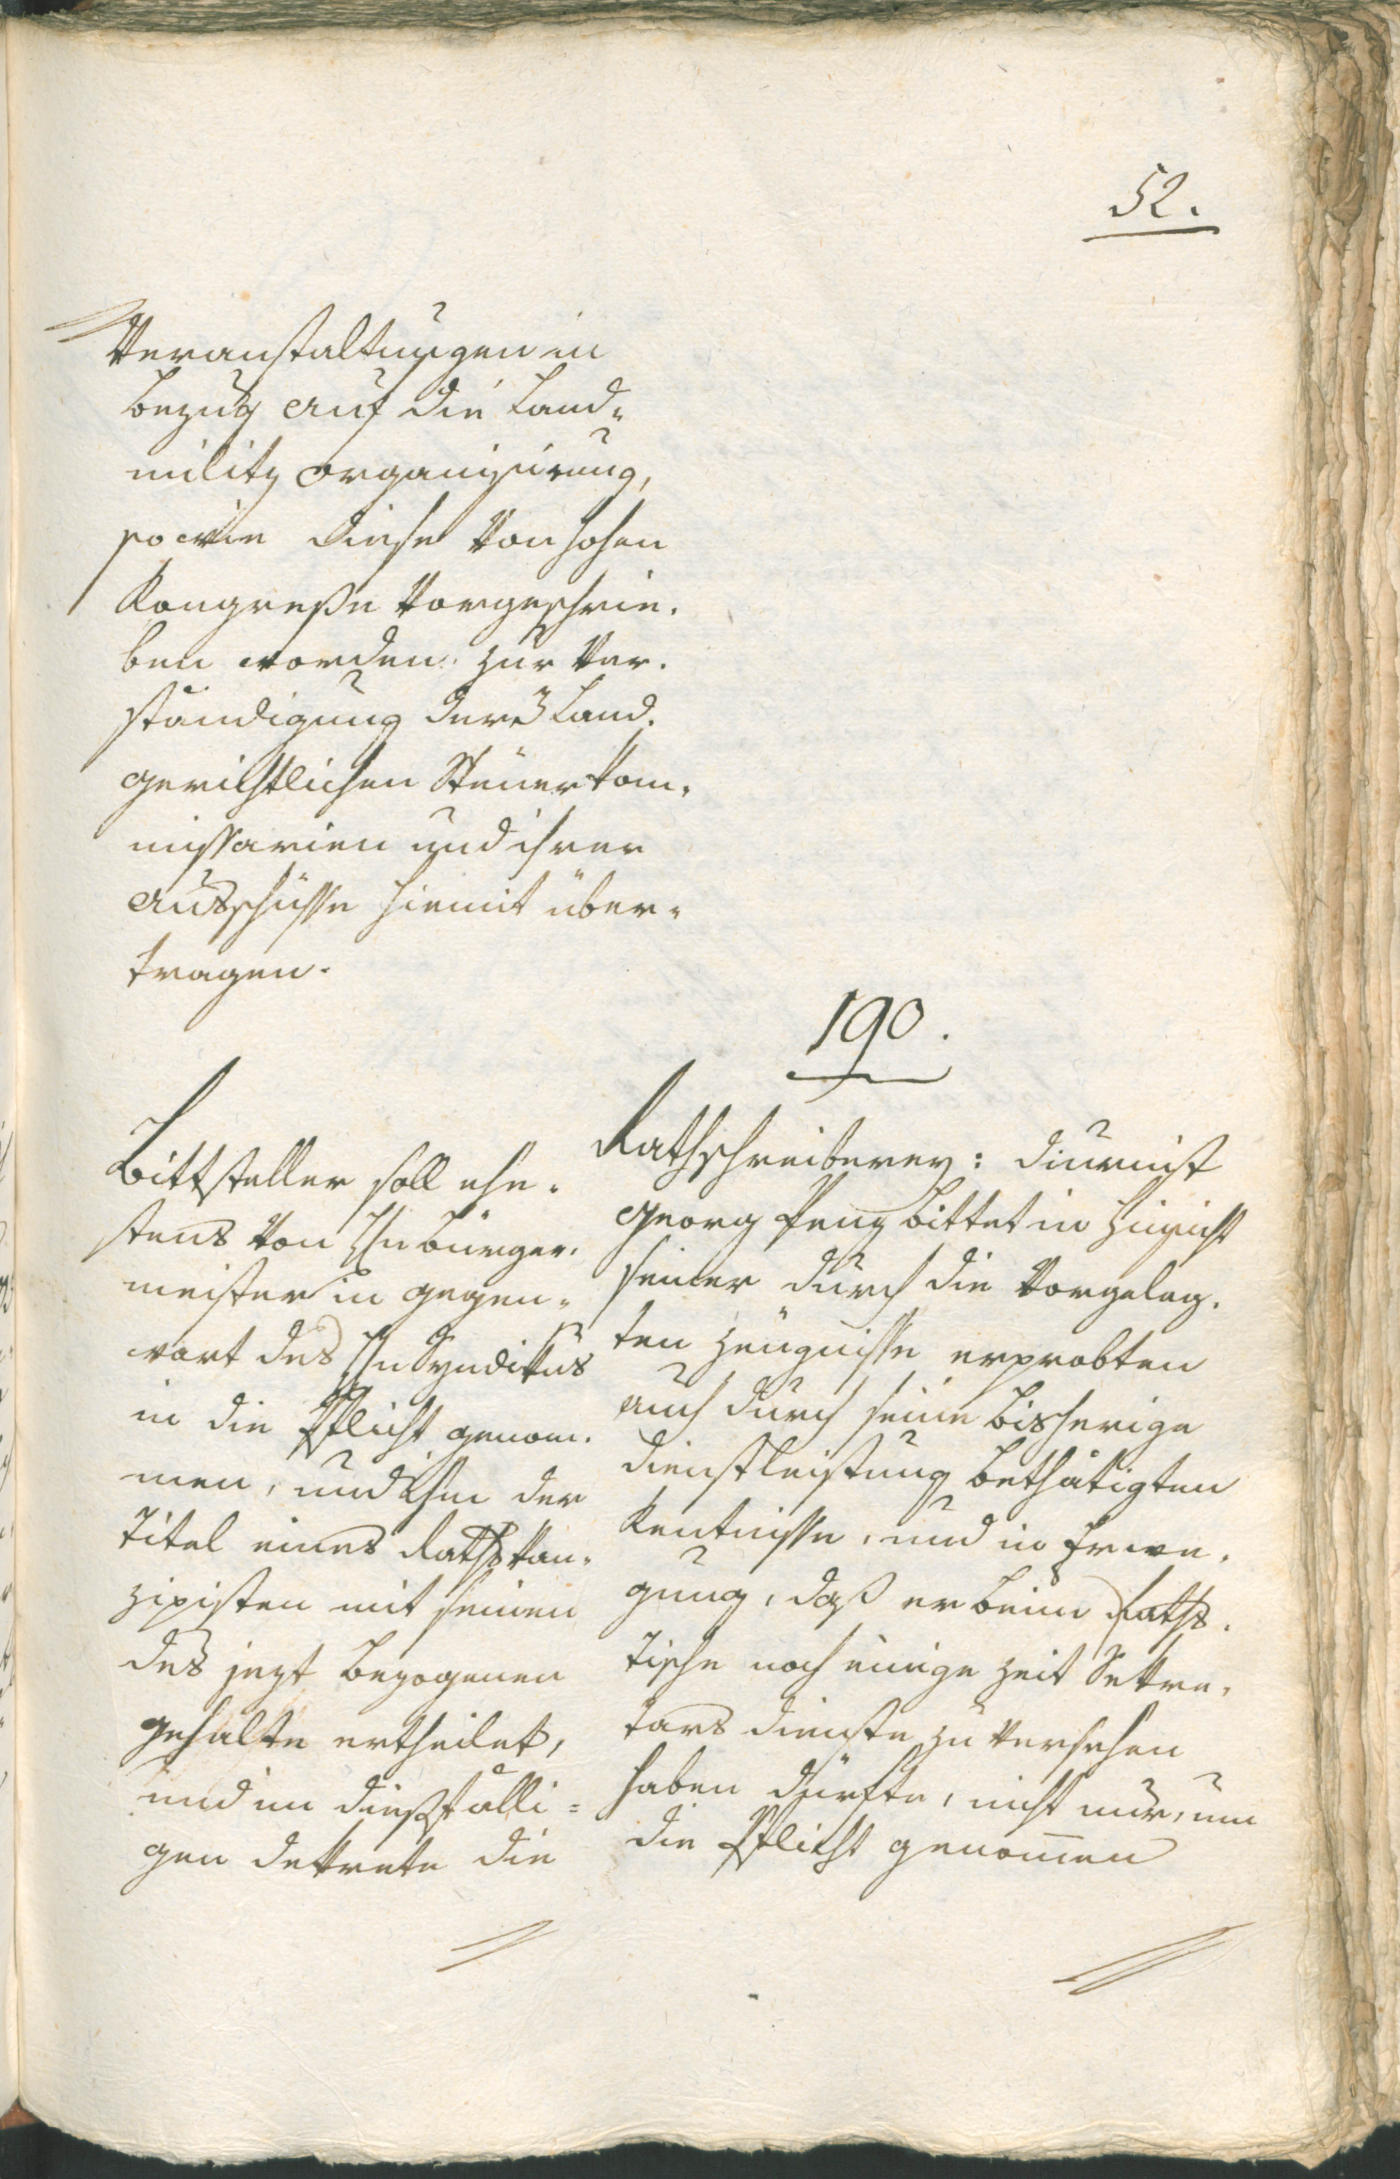 52.
Veranstaltungen in
Bezug auf die Land-
militz organisirung,
so wie diese von hohen
Kongreße vorgeschrie-
ben worden zur Ver-
ständigung der 3 Land-
gerichtlichen Steuerkom-
missarien und ihrer
Ausschüsse hiemit über-
tragen.
190.
Bittsteller soll ehe-
stens von Hn Bürger-
meister in Gegen-
wart des Hn Syndikus
in die Pflicht genom-
men, und ihm der
Titel eines Rathskan-
zipisten mit seinem
des jezt bezogenen
Gehalte ertheilet,
und im dießfälli-
gen Dekrete die
Rathschreiberey: Diurnist
Georg Penz bittet in Hinsicht
seiner durch die vorgeleg-
ten Zeugnisse erprobten
auch durch seine bisherige
Dienstleistung bethätigten
Kentnisse, und in Erwe-
gung, daß er beim Raths-
Tische noch einige Zeit Sekre-
tärs Dienste zu versehen
haben dürfte, nicht nur, um
die Pflicht genomen